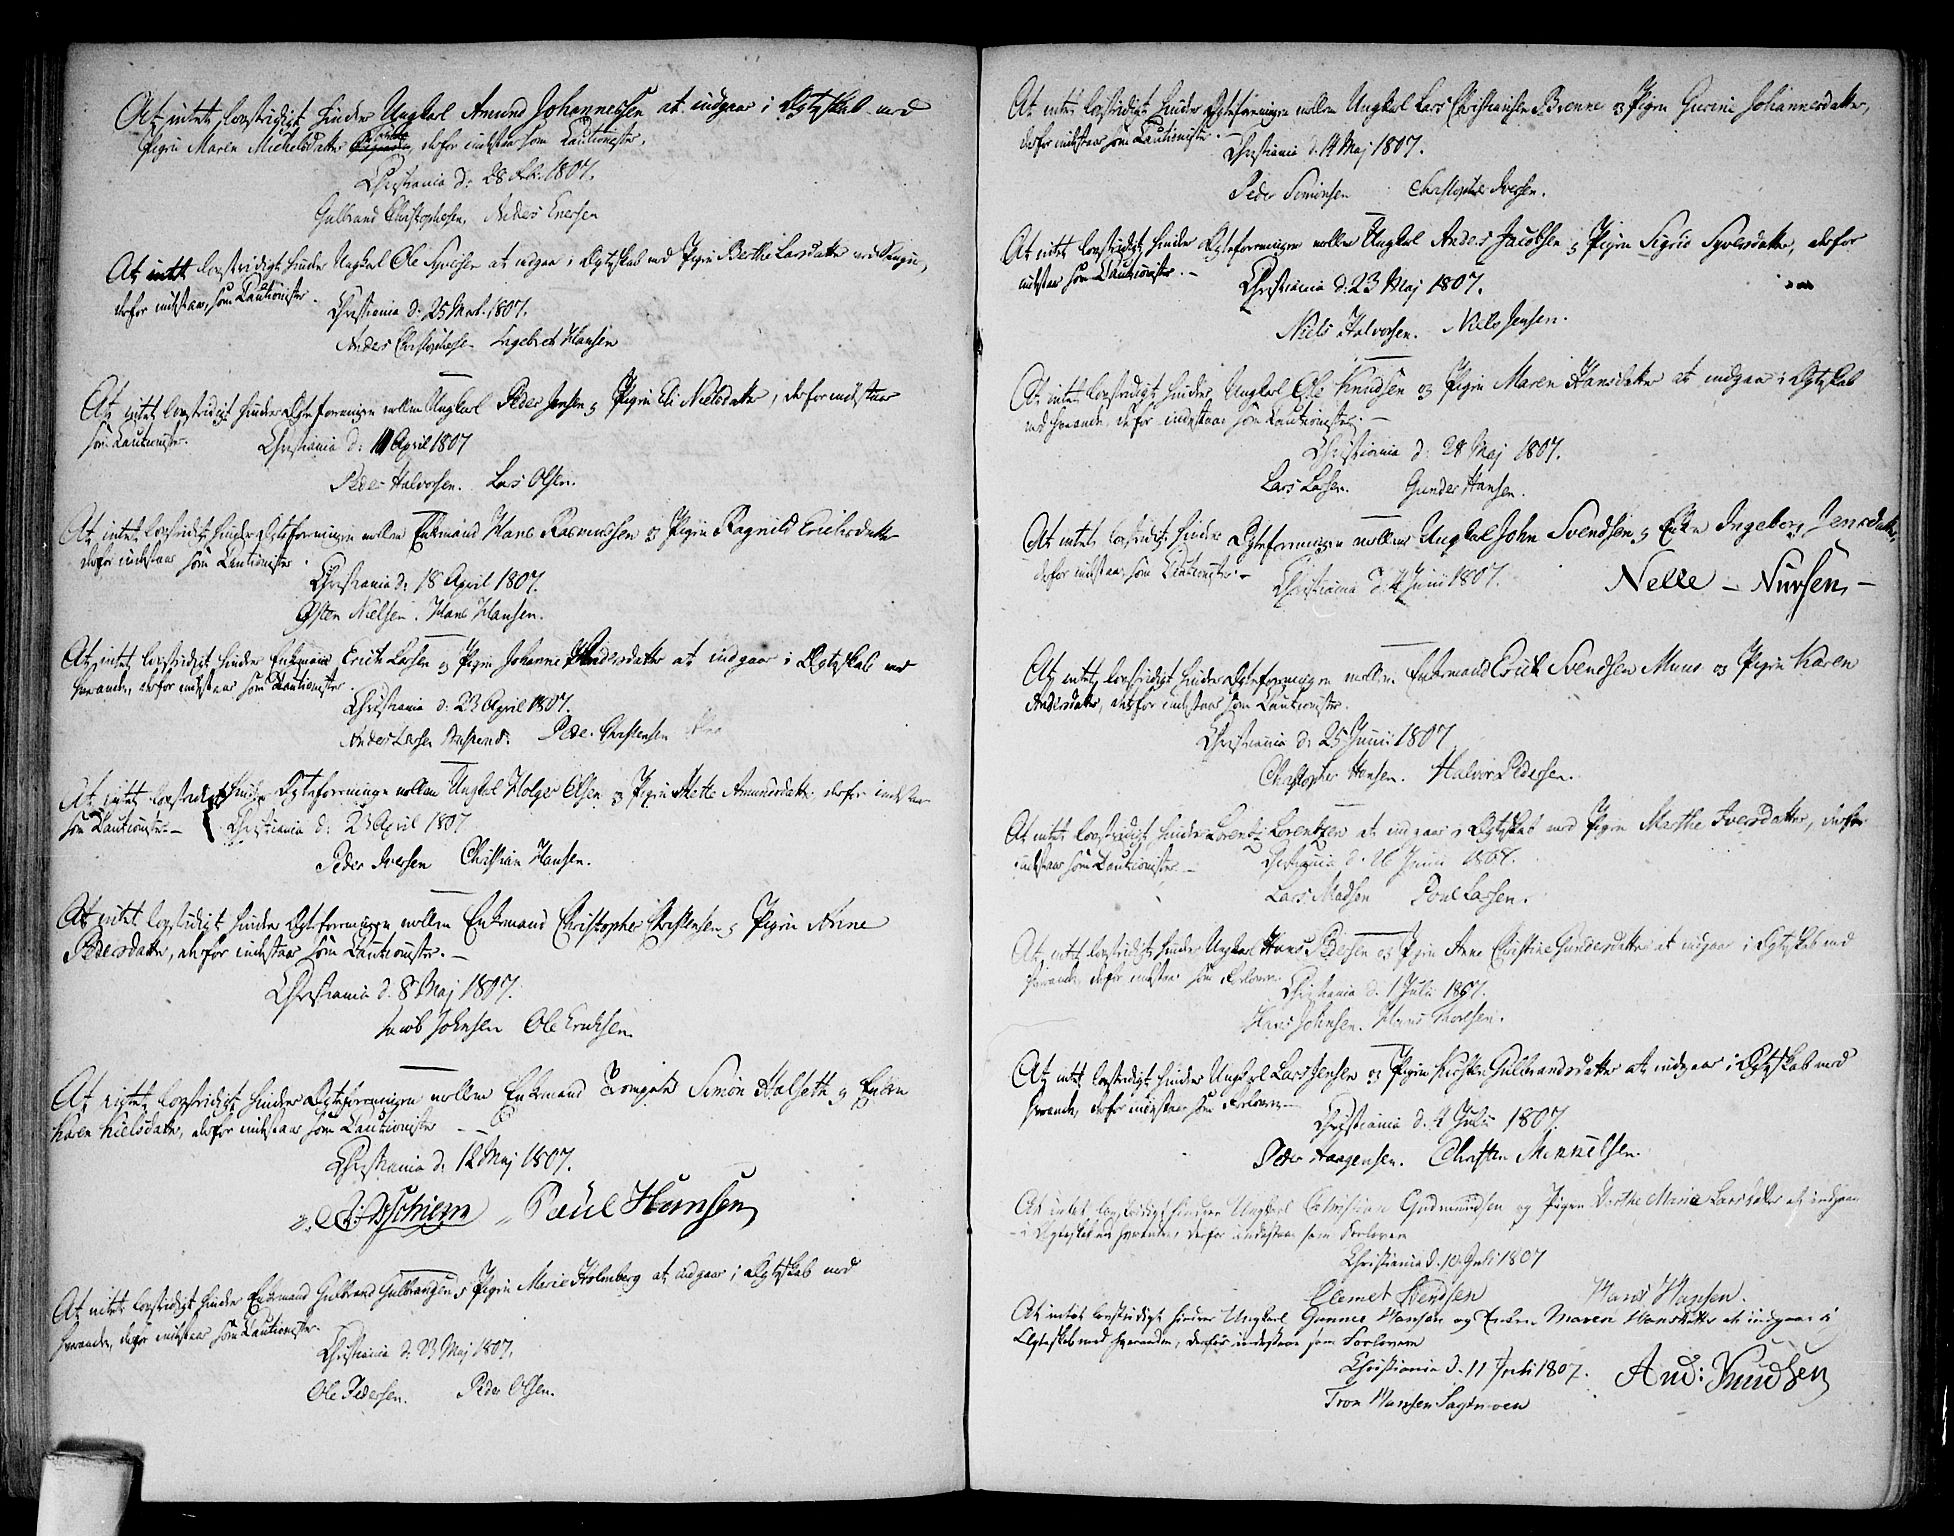 At intet lovstridigt hinder Ungkarl Amund Johannessen at indgaae i Ægteskab med
Pigen Maren Michelsdatter derfor indestaar som Cautionister.
Christiania d: 28 Feb: 1807.
Gulbrand Christophersen, Anders Enersen
At intet lovstridigt hinder Ungkarl Ole Syversen at indgaa i Ægteskab med Pigen Berthe Larsdatter
derfor indestaar, som Cautionister.
Christiania d: 25 Mart. 1807.
Anders Christophersen Ingebret Hansen
At intet lovstridigt hinder Ægteforeningen mellem Ungkarl Peder Jensen og Pigen Eli Nielsdatter, derfor indestaar
som Cautionister.
Christiania d: 11 April 1807
Peder Halvorsen. Lars Olsen.
At intet lovstridigt hinder Ægteforeningen mellem Enkemand Hans Rasmussen og Pigen Ragnild Erichsdatter
derfor indestaar som Cautionister
Christiania d: 18 April 1807.
Østen Nielsen. Hans Hansen.
At intet lovstridigt hinder Enkemand Erich Larsen og Pigen Johanne Andersdatter at indgaar i Ægteskab med
hverandre, derfor indestaar som Cautionister
Christiania d: 23 April 1807.
Anders Larsen Peder Christensen
At intet lovstridigt hinder Ægteforeninge mellem Ungkarl Holger Olsen og Pigen Mette Amundsdatter, derfor indestaar
som Cautionister. — Christiania d: 23 April 1807
Peder Iversen Christian Hansen.
At intet lovstridigt hinder Ægteforeningen mellem Enkemand Christopher Christensen og Pigen Anne
Pedersdatter, derfor indestaar som Cautionister. —
Christiania d. 8 Maj 1807.
Jacob Johnsen Ole Erichsen
At intet lovstridigt hinder Ægteforeningen mellem Enkemand Simon Halseth og Enken
Karen Nielsdatter, derfor indestaar som Cautionister —
Christiania d. 12 Maj 1807.
Paul Hansen
At intet lovstridigt hinder Enkemand Gulbrand Gulbrandsen og Pigen Marie Holmberg at indgaar i Ægteskab med
hverandre, derfor indestaar som Cautionister.
Christiania d: 23 Maj 1807.
Ole Pedersen. Peder Olsen.
At intet lovstridigt hinder Ægteforeningen mellem Ungkarl Lars Christiansen Brenne og Pigen Gurine Johannesdatter,
derfor indestaar som Cautionister. —
Christiania d. 14 Maj 1807.
Peder Simonsen Christopher Iversen.
At intet lovstridigt hinder Ægteforeningen mellem Ungkarl Anders Jacobsen og Pigen Sigrid Syversdatter, derfor
indestaar som Cautionister. —
Christiania d. 23 Maj 1807.
Niels Halvorsen. Niels Jensen.
At intet lovstridigt hinder Ungkarl Ole Knudsen og Pigen Maren Hansdatter at indgaar i Ægteskab
med hverandre, derfor indestaar som Cautionister. —
Christiania d: 28 Maj 1807.
Lars Larsen. Gunder Hansen.
At intet lovstridigt hinder Ægteforeningen mellem Ungkarl John Svendsen og Enken Ingeborg Jensdatter,
derfor indestaar som Cautionister. —
Christiania d. 4 Junii 1807. Nelle — Nursen —
At intet lovstridigt hinder Ægteforeningen mellem Enkemand Erich Svendsen Muus og Pigen Karen
Andersdatter, derfor indestaar som Cautionister.
Christiania d. 25 Junii 1807
Christopher Hansen. Halvor Pedersen.
At intet lovstridigt hinder Lorentz Lorentzen at indgaar i Ægteskab med Pigen Marthe Iversdatter, derfor
indestaar som Cautionister. —
Christiania d. 26 Junii 1807.
Lars Madsen Poul Larsen.
At intet lovstridigt hinder Ungkarl Hans Pedersen og Pigen Anne Christine Gundersdatter at indgaar i Ægteskab med
hverandre derfor indestaar som Forlovere.
Christiania d. 1 Julii 1807.
Hans Johnsen. Hans Thoresen.
At intet lovstridigt hinder Ungkarl Lars Jensen og Pigen Kirsten Gulbrandsdatter at indgaar i Ægteskab med
hverandre, derfor indestaar som Forlovere. —
Christiania d. 4 Julii 1807.
Peder Haagensen. Christen Mikkelsen.
At intet lovstridigt hinder Ungkarl Christian Gudmundsen og Pigen Dorthe Maria Larsdatter at indgaae
i Ægteskab med hverandre, derfor indestaar som Forlovere
Christiania d. 10 Juli 1807
Clemet Svendsen Hans Hansen.
At intet lovstridigt hinder Ungkarl Gunner Hansen og Enken Maren Hansdatter at indgaae i
Ægteskab med hverandre, derfor indestaar som Forlovere
Christiania d. 11 Juli 1807. And: Knudsen
Tron Hansen